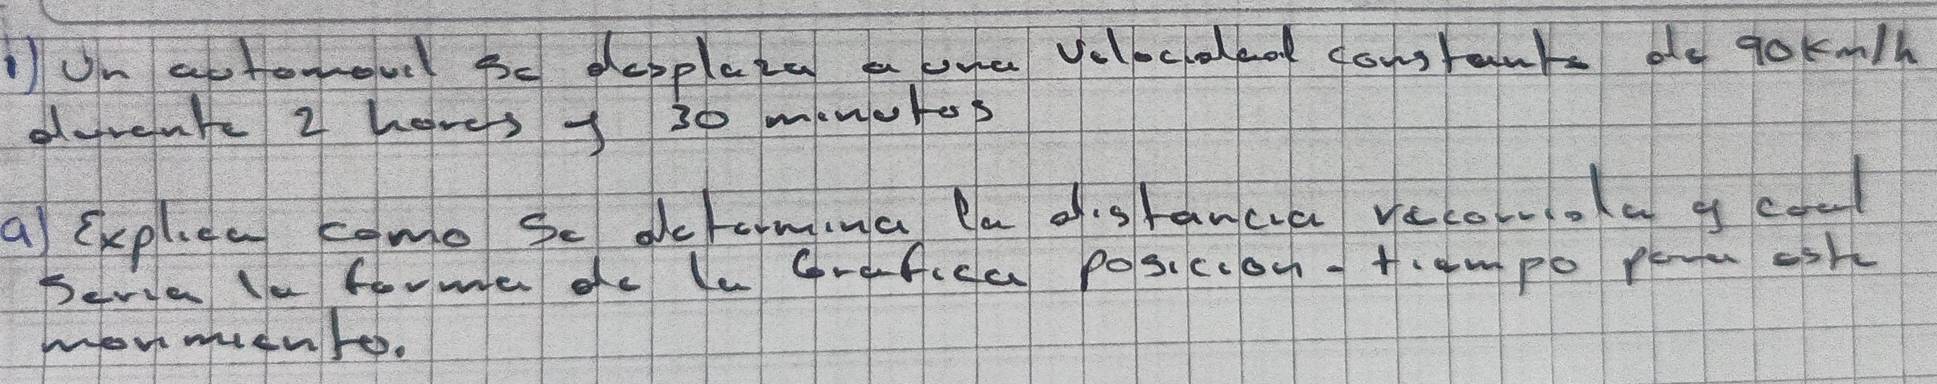 1) Un automovil se desplaza a una velocidad constante de 90 Km/h
durante 2 horas y 30 minutos
a) Explica como se determina la distancia recorrida y cual
seria la forma de la Grafica posicion - tiempo para este
movimiento.